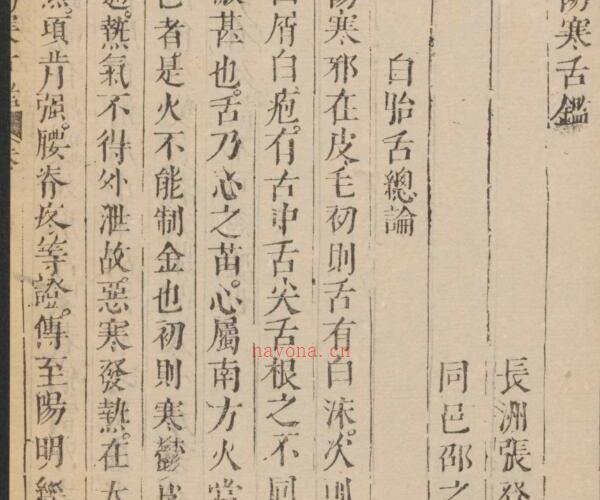 傷寒舌鑑
長洲張登
同邑邵之
白胎舌總論
傷寒邪在皮毛初則舌有白沫。次則
白屑白疱。有舌中舌尖舌根之不同
甚也。舌乃心之苗。心屬南方火當
色者是火不能制金也初則寒鬱皮
熱氣不得外泄故。惡寒發熱。在太
項背强。腰脊疼等證。傳至陽明經
hayona.cn